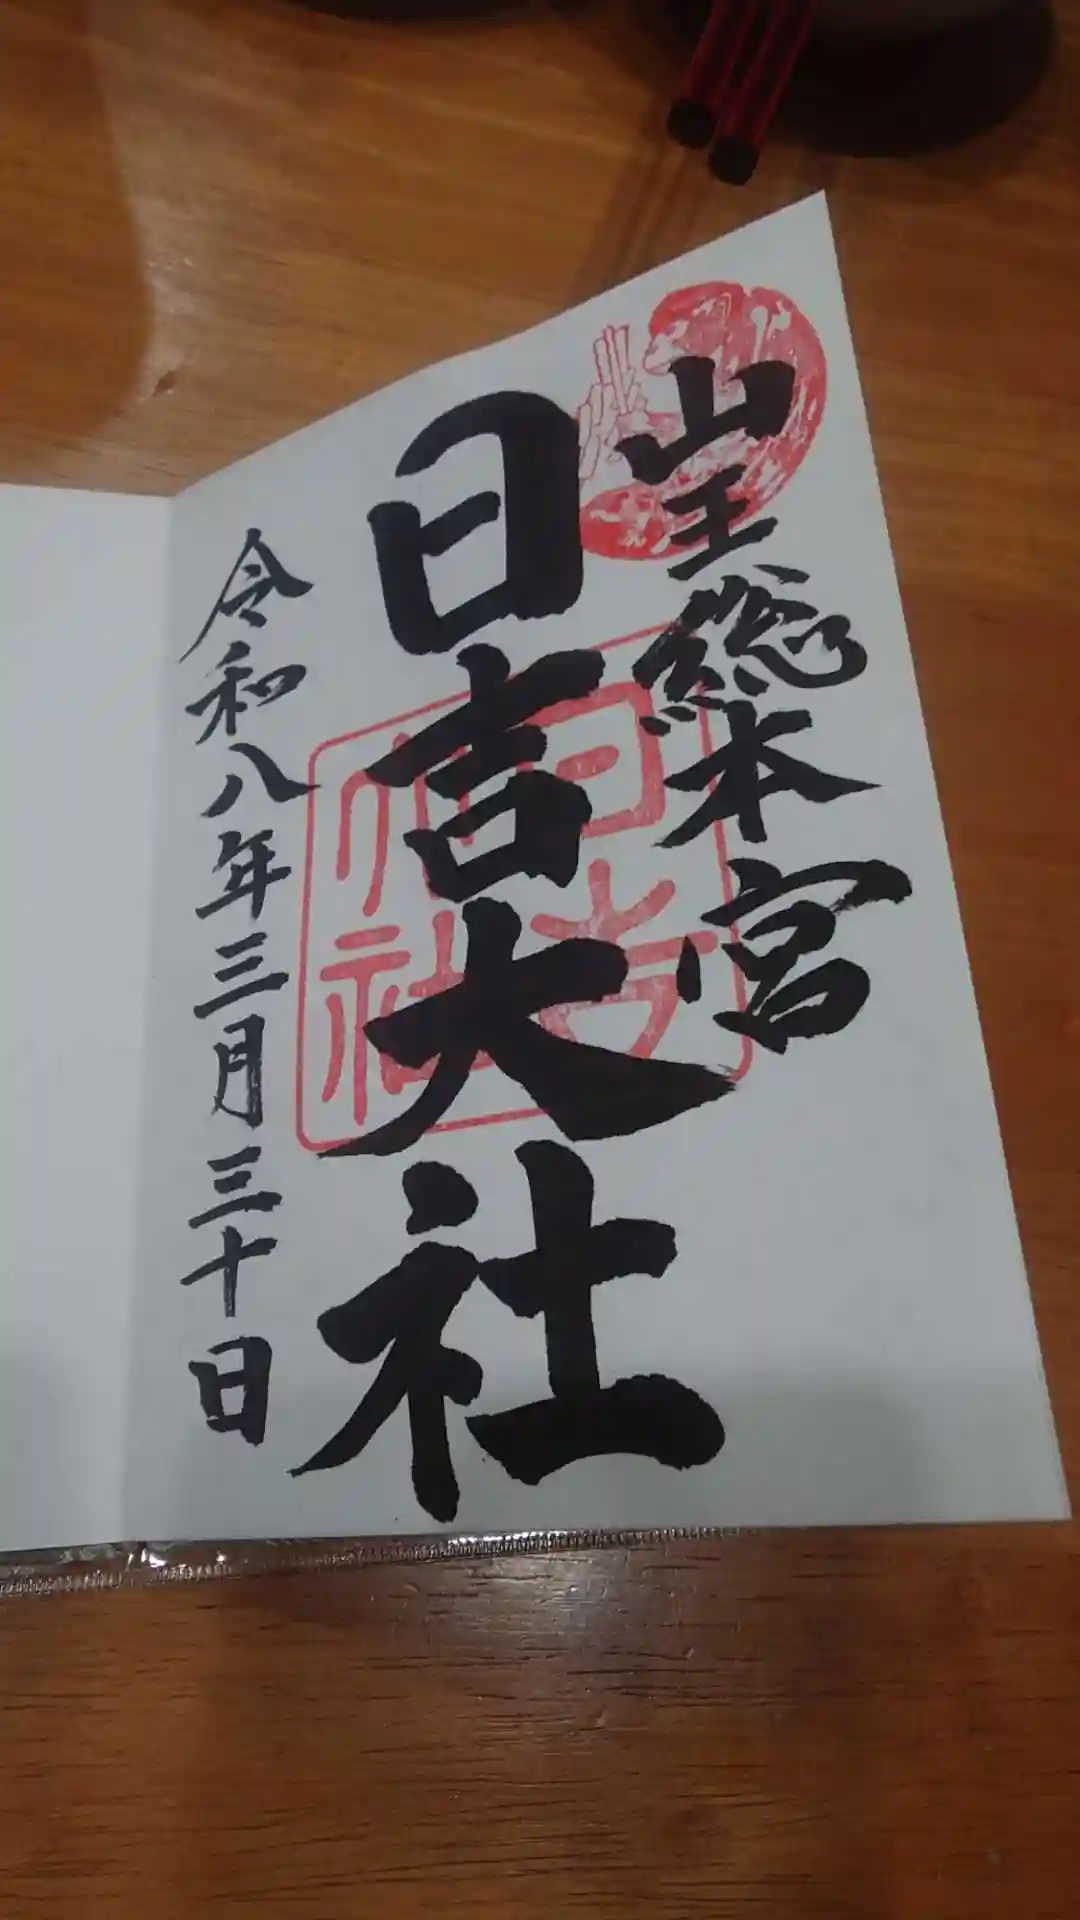 山王総本宮
日吉大社
日吉
大社
令和八年三月三十日